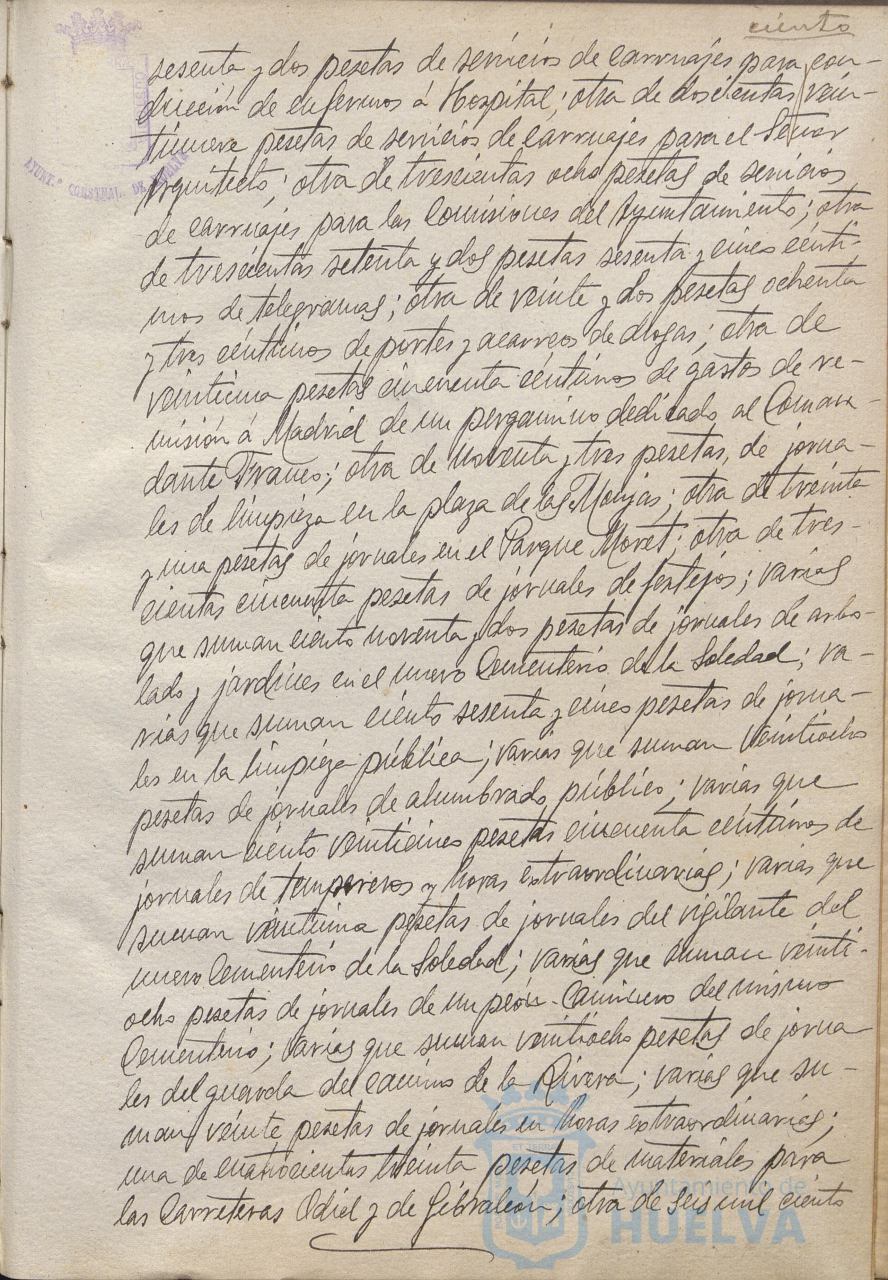 ciento
sesenta y dos pesetas de servicios de carruajes para con-
ducción de enfermos á Hospital; otra de doscientas vein-
tinueve pesetas de servicios de carruajes para el Señor
Arquitecto; otra de trescientas ocho pesetas de servicios
de carruajes para las Comisiones del Ayuntamiento; otra
de trescientas setenta y dos pesetas sesenta y cinco cénti-
mos de telegramas; otra de veinte y dos pesetas ochenta
y tres céntimos de portes y acarreos de drogas; otra de
veintiuna pesetas cincuenta céntimos de gastos de re-
misión á Madrid de un pergamino dedicado al Coman-
dante Franco; otra de noventa y tres pesetas, de jorna-
les de limpieza en la plaza de las Monjas; otra de treinta
y una pesetas de jornales en el Parque Moret; otra de tres-
cientas cincuenta pesetas de jornales de festejos; varias
que suman ciento noventa y dos pesetas de jornales de arbo-
lado y jardines en el nuevo Cementerio de la Soledad; va-
rias que suman ciento sesenta y cinco pesetas de jorna-
les en la limpieza pública; varias que suman veintiocho
pesetas de jornales de alumbrado público; varias que
suman ciento veinticinco pesetas cincuenta céntimos de
jornales de temporeros y horas extraordinarias; varias que
suman veintiuna pesetas de jornales del vigilante del
nuevo Cementerio de la Soledad; varias que suman veinti-
ocho pesetas de jornales de un peón-caminero del mismo
Cementerio; varias que suman veintiocho pesetas de jorna-
les del guarda del camino de la Rivera; varias que su-
man veinte pesetas de jornales en horas extraordinarias;
una de cuatrocientas treinta pesetas de materiales para
las Carreteras Odiel y de Gibraleón; otra de seis mil ciento
AYUNT.º CONSTNAL. DE HUELVA
Ayuntamiento de
HUELVA